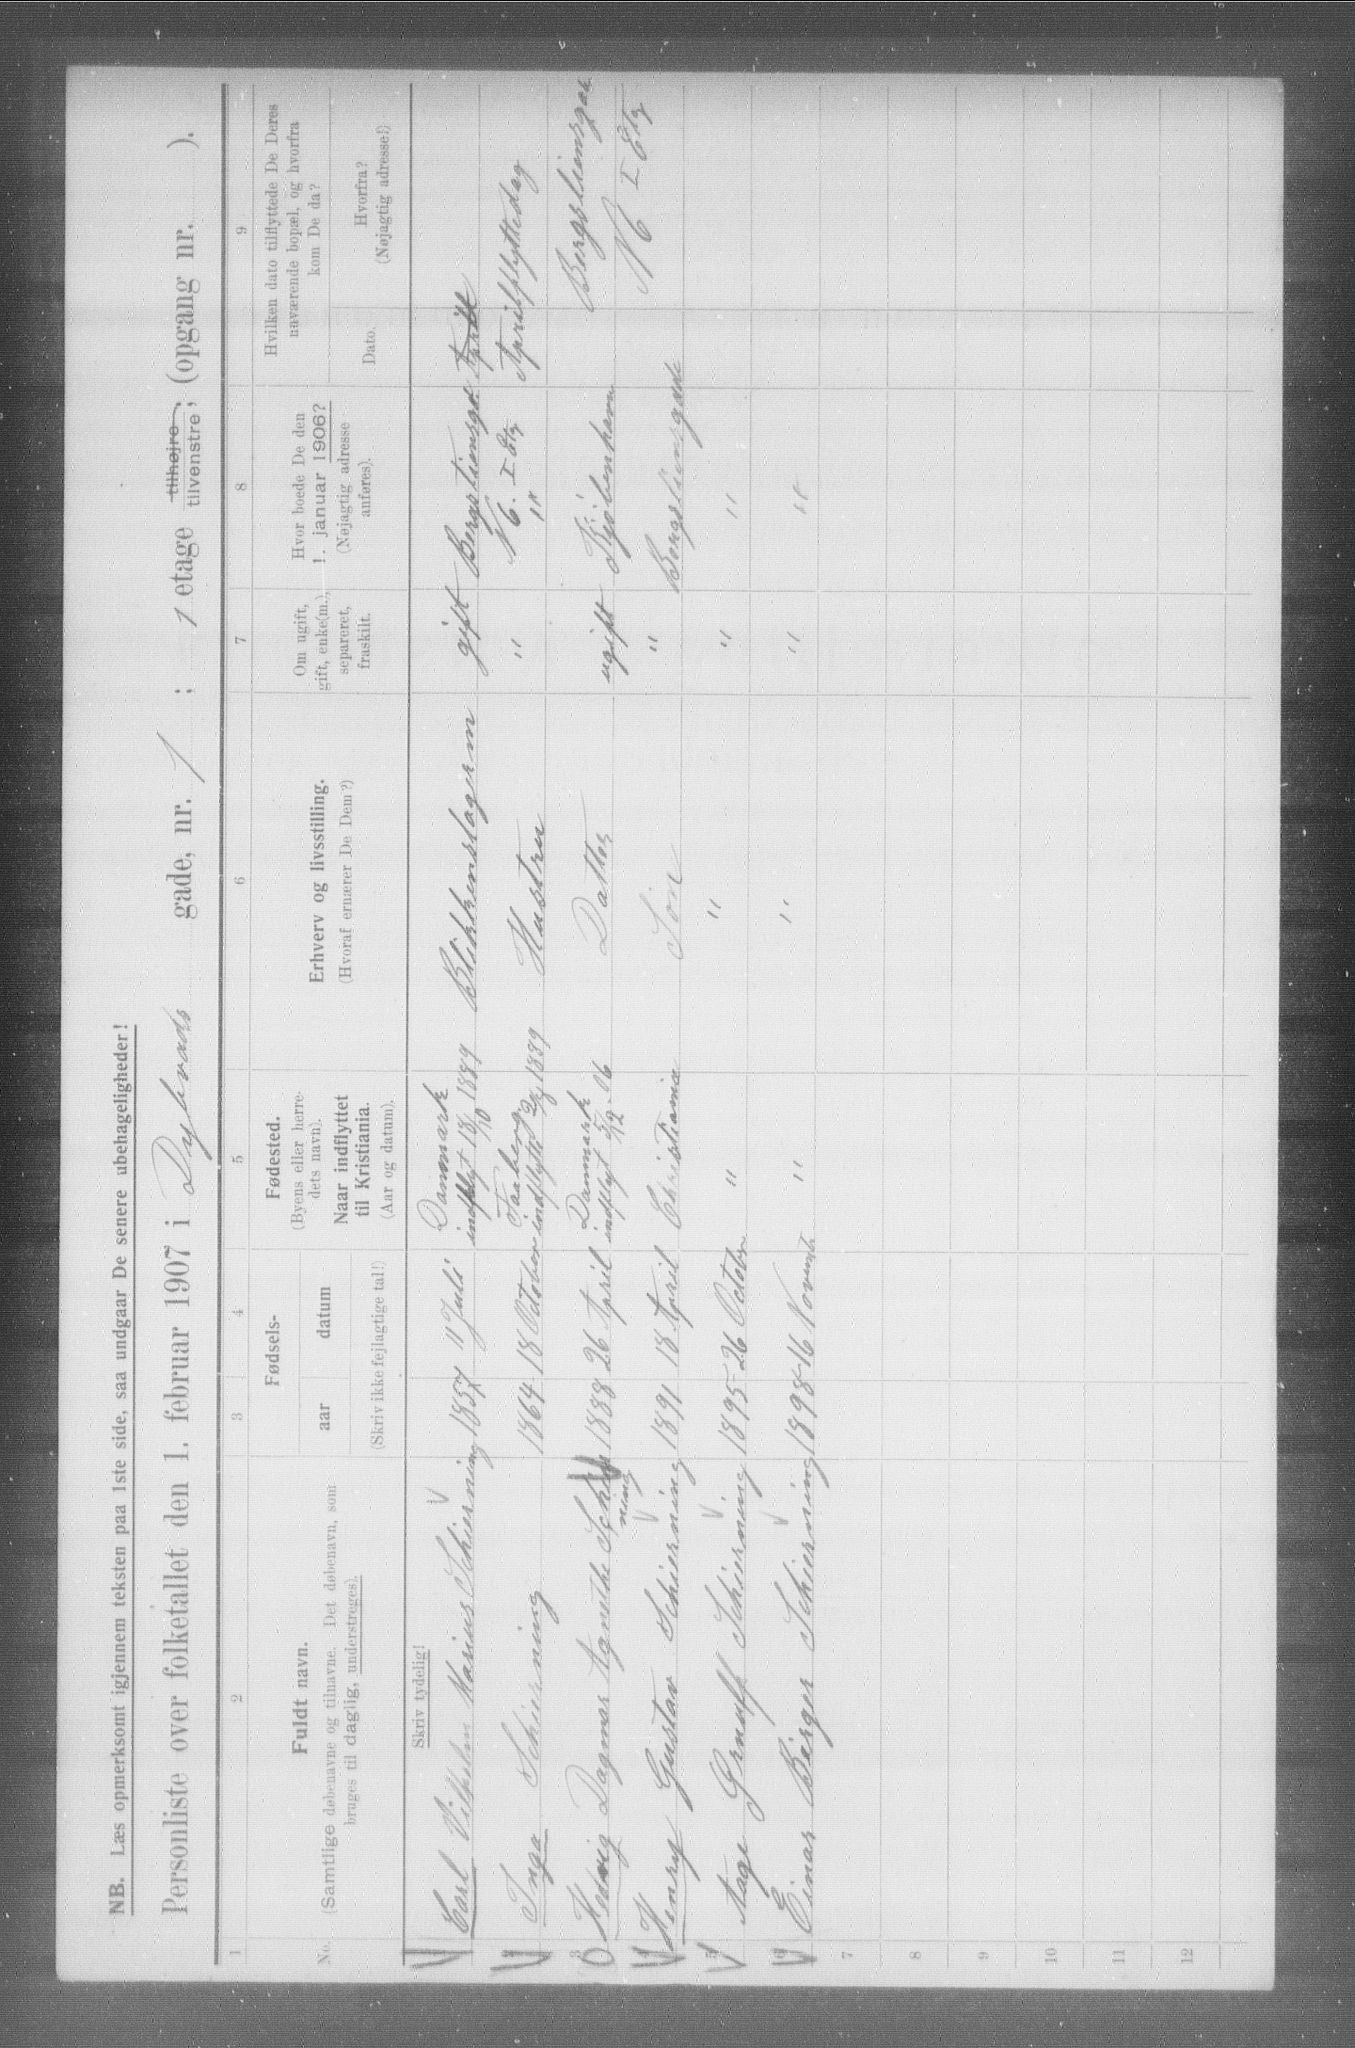 NB. Læs opmerksomt igjennem teksten paa 1ste side, saa undgaar De senere ubehageligheder!
Personliste over folketallet den 1. februar 1907 i Dybvads gade, nr. 1 ; 1 etage tilhøjre, tilvenstre; (opgang nr. ).
1 2 3 4 5 6 7 8 9
No.
Fuldt navn.
(Samtlige døbenavne og tilnavne. Det døbenavn, som
bruges til daglig, understreges).
Fødsels-
aar datum
(Skriv ikke fejlagtige tal!)
Fødested.
(Byens eller herre-
dets navn).
Naar indflyttet
til Kristiania.
(Aar og datum).
Erhverv og livsstilling.
(Hvoraf ernærer De Dem?)
Om ugift,
gift, enke(m.),
separeret,
fraskilt.
Hvor boede De den
1. januar 1906?
(Nøjagtig adresse
anføres).
Hvilken dato tilflyttede De Deres
nuværende bopæl, og hvorfra
kom De da?
Dato.
Hvorfra?
(Nøjagtig adresse!)
Skriv tydelig!
Carl Vilhelm Marius Schierning 1857 11 Juli Danmark indflyt 18/10 1889 Blikkenslagerm gift Bergsliensgd 16. I Etg April
2 Inga Schierning 1864 18 October Faaberg indflytte 1889 Hustru " " Aprilflyttedag
3 Hedvig Dagmar Agnethe Schierning 1888 26 April Danmark indflyt 06 Datter ugift Kjøbenhavn Bergsliensgade
4 Henry Gustav Schierning 1891 18 April Christiania Søn " Bergsliensgade 16 I Etg
5 Aage Schierning 1895 26 October " " " "
6 Einar Birger Schierning 1898 16 Novemb " " " "
7
8
9
10
11
12